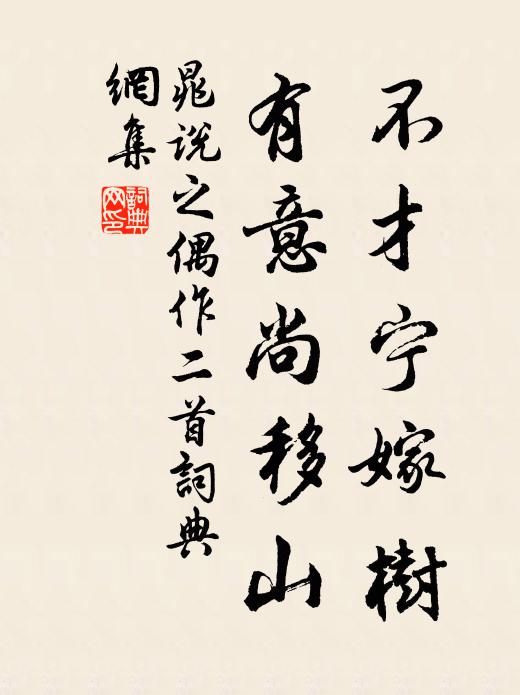 不才宁嫁樹
有意尚移山
晁説之偶作二首詞典
網集
詞典
网印